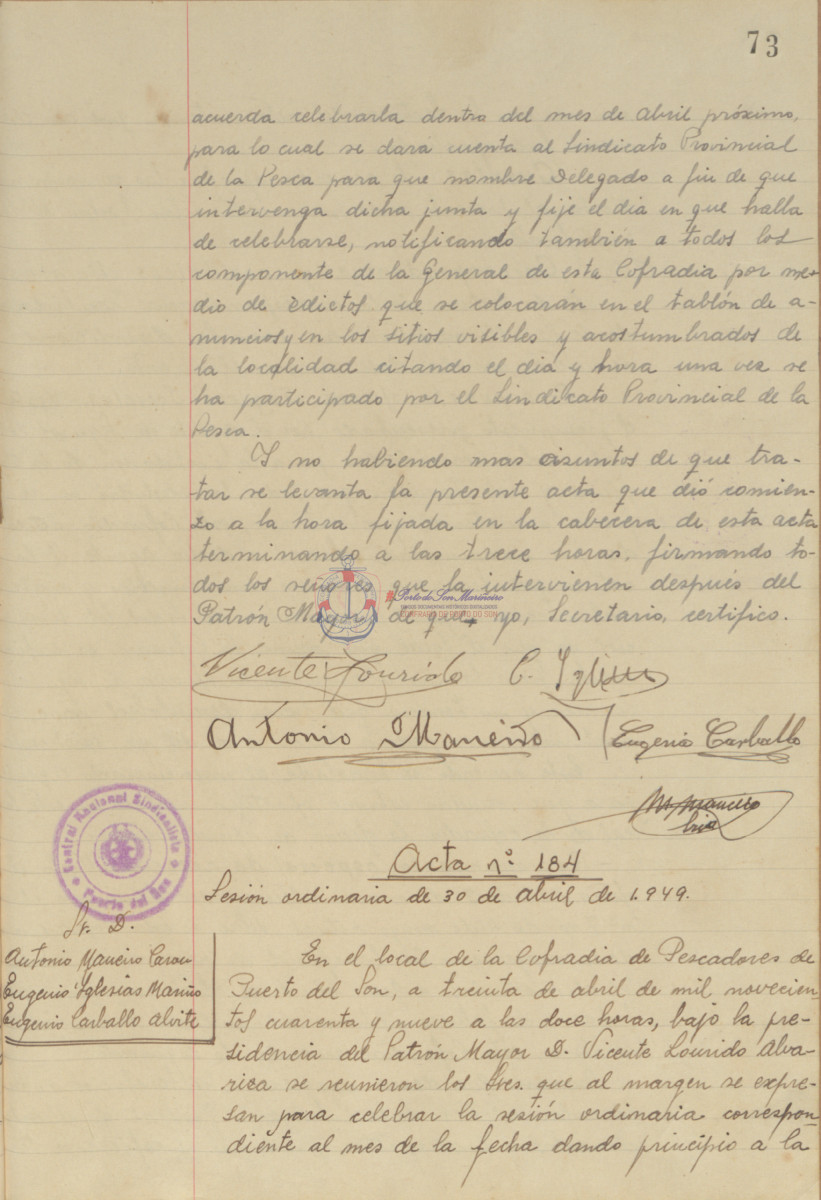 73
acuerda celebrarla dentro del mes de abril próximo,
para lo cual se dará cuenta al Sindicato Provincial
de la Pesca para que nombre Delegado a fin de que
intervenga dicha junta y fije el día en que halla
de celebrarse, notificando también a todos los
componente de la General de esta Cofradia por me-
dio de edictos que se colocarán en el tablón de a-
nuncios y en los sitios visibles y acostumbrados de
la localidad citando el día y hora una vez se
ha participado por el Sindicato Provincial de la
Pesca.
Y no habiendo mas asuntos de que tra-
tar se levanta la presente acta que dió comien-
zo a la hora fijada en la cabecera de esta acta
terminando a las trece horas, firmando to-
dos los señores que la intervienen después del
Patrón Mayor, de que, yo, Secretario, certifico.
Porto do Son Mariñeiro
Vicente Lourido E. Iglesias
Antonio Maneiro Eugenio Carballo
M. Maneiro
Central Nacional Sindicalista
Puerto del Son
Acta n.º 184
Sesión ordinaria de 30 de abril de 1.949.
Sr. D.
Antonio Maneiro Carou
Eugenio Iglesias Mariño
Eugenio Carballo Alvite
En el local de la Cofradia de Pescadores de
Puerto del Son, a treinta de abril de mil novecien-
tos cuarenta y nueve a las doce horas, bajo la pre-
sidencia del Patrón Mayor D. Vicente Lourido Alva-
rica se reunieron los Sres. que al margen se expre-
san para celebrar la sesión ordinaria correspon-
diente al mes de la fecha dando principio a la